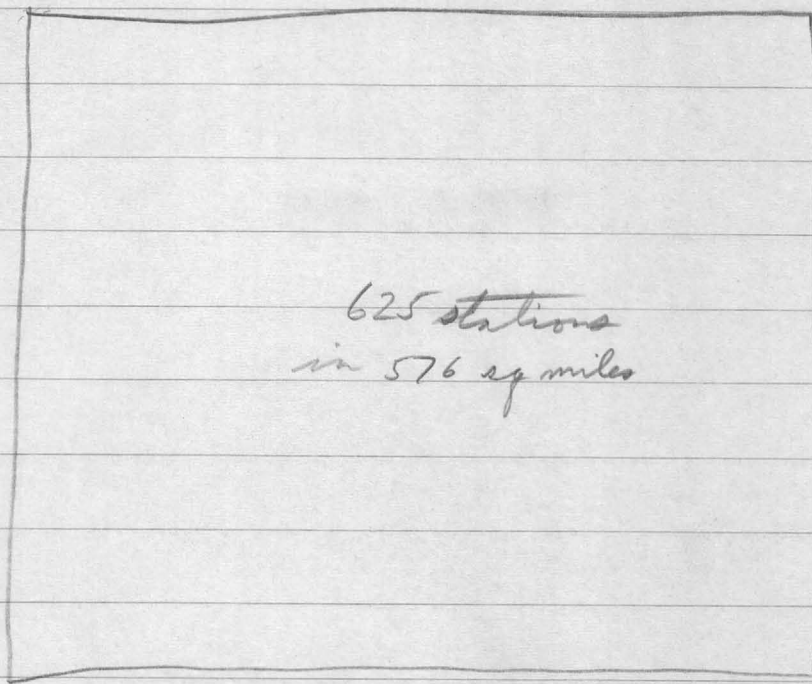 625 stations
in 576 sq miles